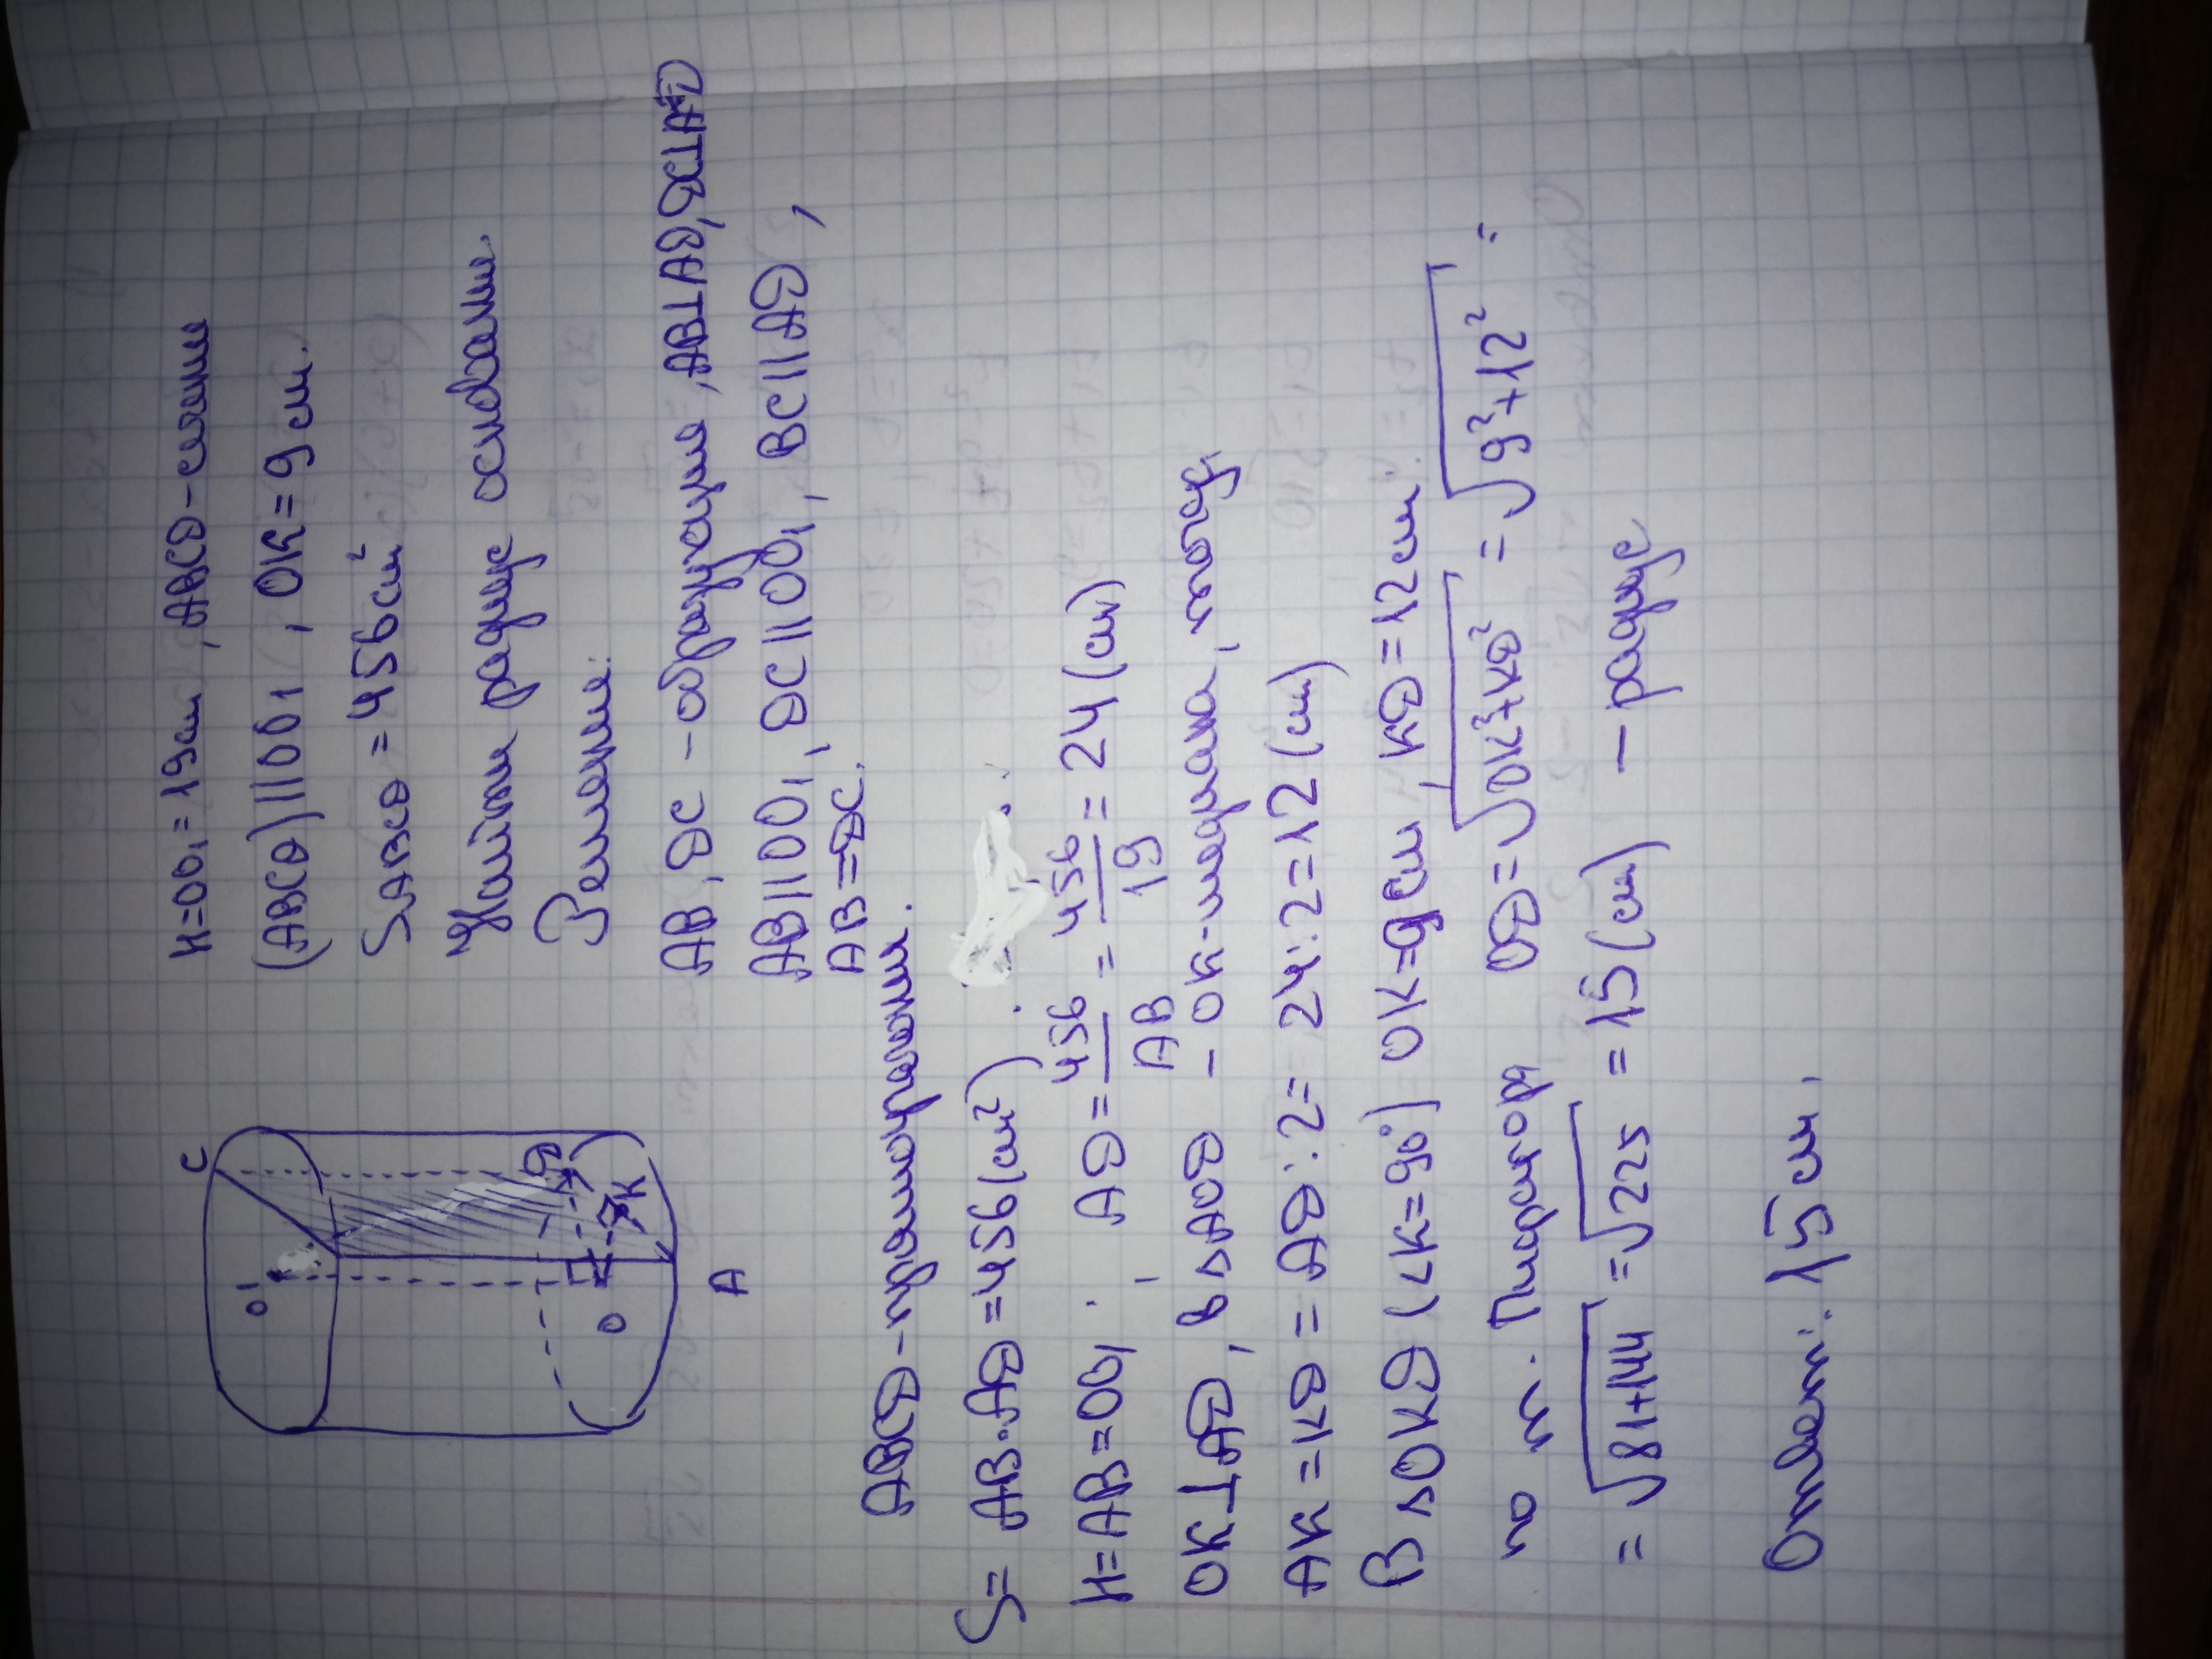 H=OO₁=19см, ABCD-сечение
(ABCD)||OO₁, OK=9см.
SABCD=456см²
Найти радиус основания.
Решение:
AB, DC - образующие, AB⊥AD, DC⊥AD
AB||OO₁, DC||OO₁, BC||AD,
AB=DC.
ABCD-прямоугольник.
S= AB·AD=456(см²).
H=AB=OO₁. AD=456/AB=456/19=24(см)
OK⊥AD, в ΔAOD - OK-медиана,
AK=KD=AD:2= 24:2=12(см)
В ΔOKD (∠K=90°) OK=9см, KD=12см
по т. Пифагора OD=√OK²+DK²=√9²+12²=
=√81+144=√225=15(см) - радиус
Ответ: 15см.
C
O₁
D
K
O
A